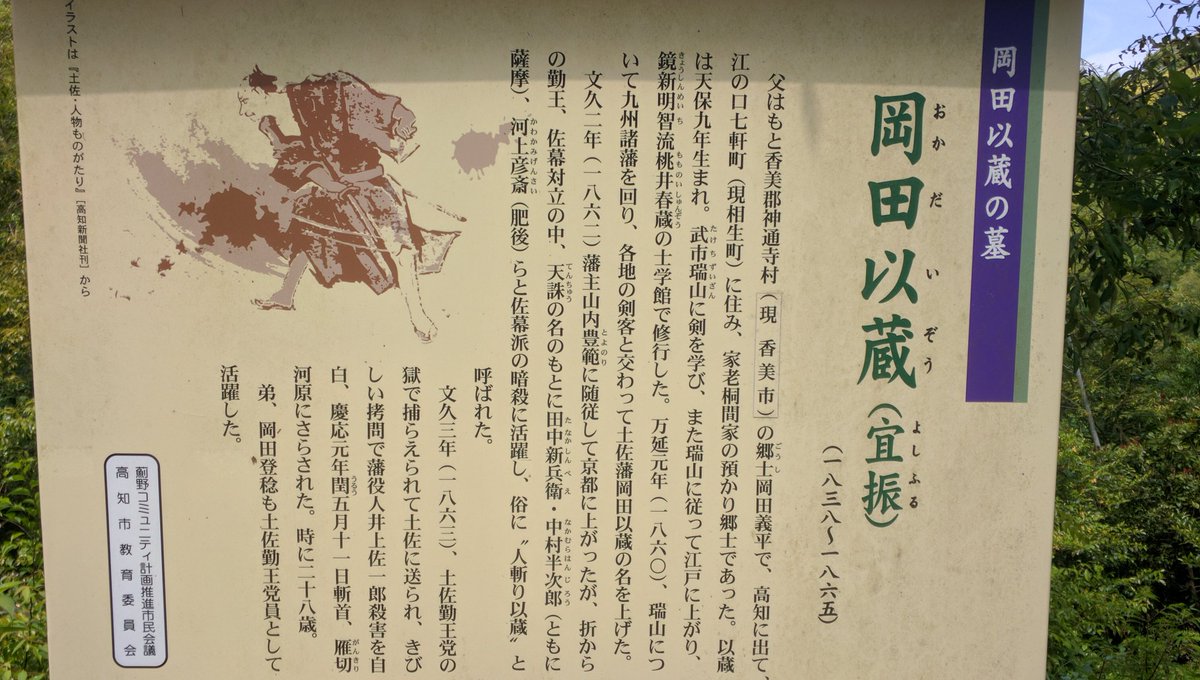 岡田以蔵の墓
岡田以蔵（宜振）
おかだいぞう
よしふる
（一八三八〜一八六五）
父はもと香美郡神通寺村（現 香美市）の郷士岡田義平で、高知に出て、
江の口七軒町（現相生町）に住み、家老桐間家の預かり郷士であった。以蔵
は天保九年生まれ。武市瑞山に剣を学び、また瑞山に従って江戸に上がり、
鏡新明智流桃井春蔵の士学館で修行した。万延元年（一八六〇）、瑞山につ
いて九州諸藩を回り、各地の剣客と交わって土佐藩岡田以蔵の名を上げた。
文久二年（一八六二）藩主山内豊範に随従して京都に上がったが、折から
の勤王、佐幕対立の中、天誅の名のもとに田中新兵衛・中村半次郎（ともに
薩摩）、河上彦斎（肥後）らと佐幕派の暗殺に活躍し、俗に〝人斬り以蔵〟と
呼ばれた。
文久三年（一八六三）、土佐勤王党の
獄で捕らえられて土佐に送られ、きび
しい拷問で藩役人井上佐一郎殺害を自
白、慶応元年閏五月十一日斬首、雁切
河原にさらされた。時に二十八歳。
弟、岡田登稔も土佐勤王党員として
活躍した。
ごうし
たけちずいざん
きょうしんめいち
もものいしゅんぞう
とよのり
てんちゅう
たなかしんべえ
なかむらはんじろう
かわかみげんさい
うるう
がんきり
イラストは『土佐・人物ものがたり』［高知新聞社刊］から
薊野コミュニティ計画推進市民会議
高知市教育委員会